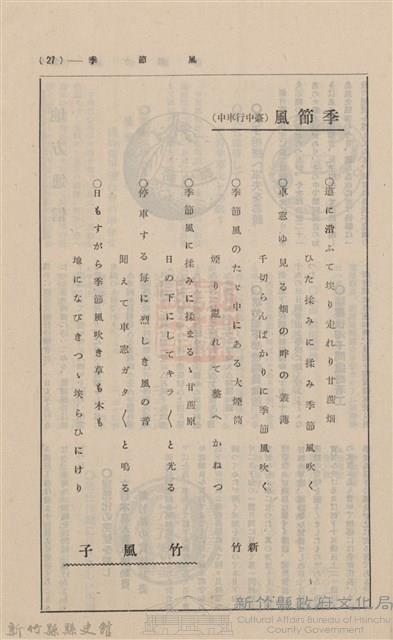 (27)―季節風
季節風(臺中行車中)
〇道に沿ふて埃り走れり甘蔗畑
ひた揉みに揉み季節風吹く
〇車窓ゆ見る畑の畔の叢薄
千切らんばかりに季節風吹く
〇季節風のたゞ中にある大煙筒
煙り亂れて整へかねつ
〇季節風に揉みに揉まるゝ甘蔗原
日の下にしてキラ〱と光る
〇停車する每に烈しき風の音
聞えて車窓ガタ〱と鳴る
〇日もすがら季節風吹き草も木も
地になびきつゝ埃らひにけり
新竹
竹風子
新竹縣政府文化局
Cultural Affairs Bureau of Hsinchu County Government
新竹縣縣史館